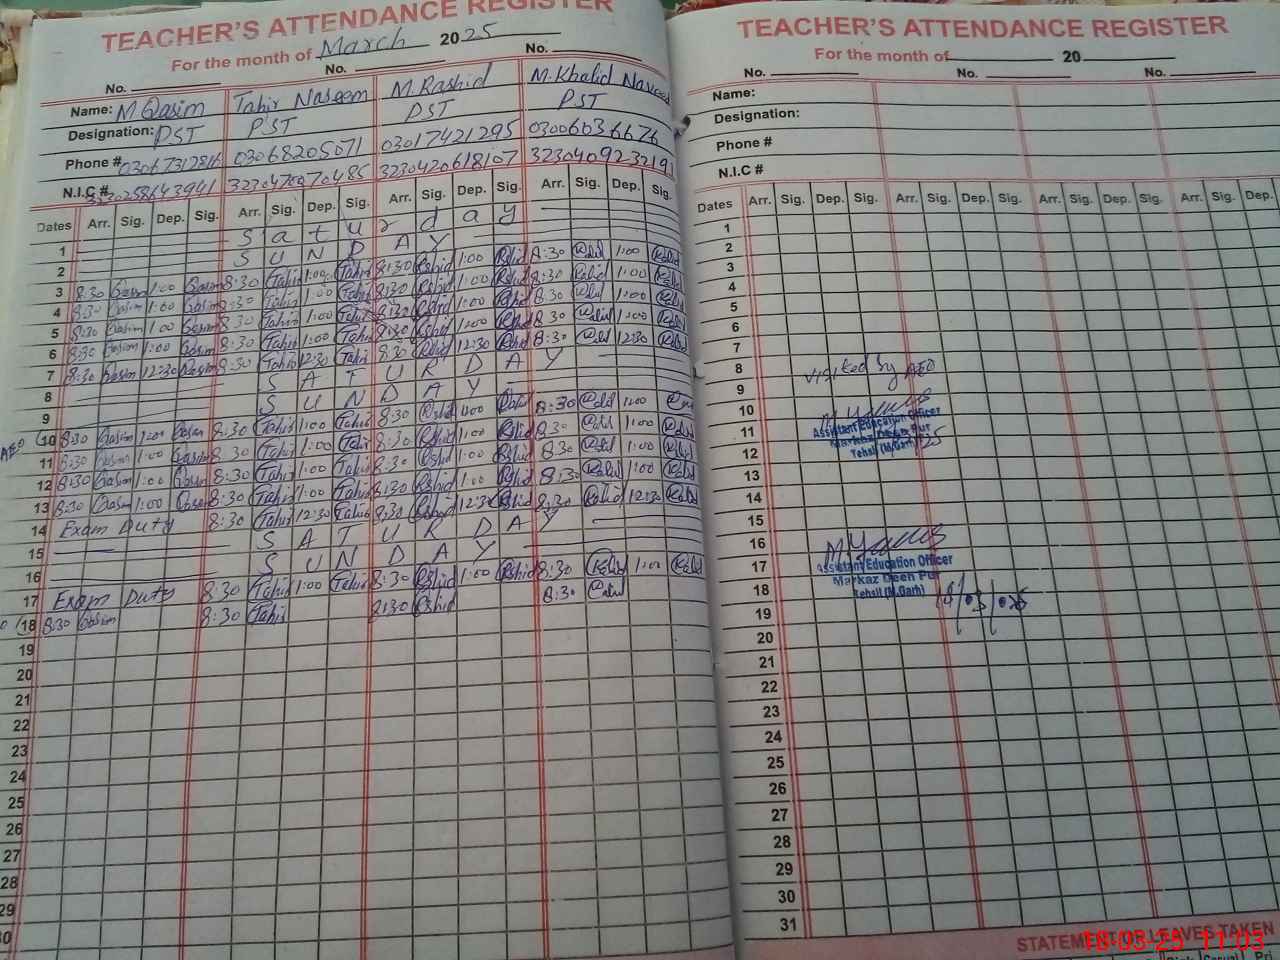 TEACHER'S ATTENDANCE REGISTER
For the month of March 2025
No. No. No.
Name: M Qasim Tahir Naseem M. Rashid M. Khalid Naveed
Designation: PST PST PST PST
Phone # 03067312816 03068205071 03017421295 03006036676
N.I.C #
Dates Arr. Sig. Dep. Sig. Arr. Sig. Dep. Sig. Arr. Sig. Dep. Sig. Arr. Sig. Dep. Sig.
1 Saturday
2 SUNDAY
3 8:30 Qasim 1:00 Qasim 8:30 Tahir 1:00 Tahir 8:30 Rshid 1:00 Rshid 8:30 1:00
4 8:30 Qasim 1:00 Qasim 8:30 Tahir 1:00 Tahir 8:30 Rshid 1:00 Rshid 8:30 1:00
5 8:30 Qasim 1:00 Qasim 8:30 Tahir 1:00 Tahir 8:30 Rshid 1:00 Rshid 8:30 1:00
6 8:30 Qasim 1:00 Qasim 8:30 Tahir 1:00 Tahir 8:30 Rshid 1:00 Rshid 8:30 1:00
7 8:30 Qasim 12:30 Qasim 8:30 Tahir 12:30 Tahir 8:30 Rshid 12:30 Rshid 8:30 12:30
8 SATURDAY
9 SUNDAY
AEO 10 8:30 Qasim 1:00 Qasim 8:30 Tahir 1:00 Tahir 8:30 Rshid 1:00 8:30 1:00
11 8:30 Qasim 1:00 Qasim 8:30 Tahir 1:00 Tahir 8:30 Rshid 1:00 Rshid 8:30 1:00
12 8:30 Qasim 1:00 Qasim 8:30 Tahir 1:00 Tahir 8:30 Rshid 1:00 Rshid 8:30 1:00
13 8:30 Qasim 1:00 Qasim 8:30 Tahir 1:00 Tahir 8:30 Rshid 1:00 Rshid 8:30 1:00
14 Exam Duty 8:30 Tahir 12:30 Tahir 8:30 Rshid 12:30 Rshid 8:30 12:30
15 SATURDAY
16 SUNDAY
17 Exam Duty 8:30 Tahir 1:00 Tahir 8:30 Rshid 1:00 Rshid 8:30 1:00
18 8:30 Qasim 8:30 Tahir 8:30 Rshid 8:30
19
20
21
22
23
24
25
26
27
28
29
30
TEACHER'S ATTENDANCE REGISTER
For the month of 20
No. No. No.
Name:
Designation:
Phone #
N.I.C #
Dates Arr. Sig. Dep. Sig. Arr. Sig. Dep. Sig. Arr. Sig. Dep. Sig. Arr. Sig. Dep.
1
2
3
4
5
6
7
8 Visited by AEO
9
10
11 Assistant Education Officer
12 Markaz Deen Pur
Tehsil (M.Garh)
13
14
15
16
17 Assistant Education Officer
18 Markaz Deen Pur
Tehsil (M.Garh)
19
20
21
22
23
24
25
26
27
28
29
30
31
STATEMENT OF LEAVES TAKEN
18-03-25 11:03